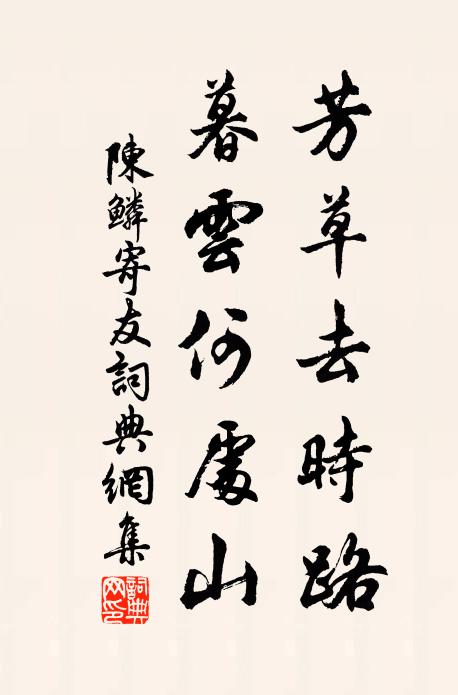 芳草去時路
暮雲何處山
陳鱗寄友詞典網集
詞典
网印